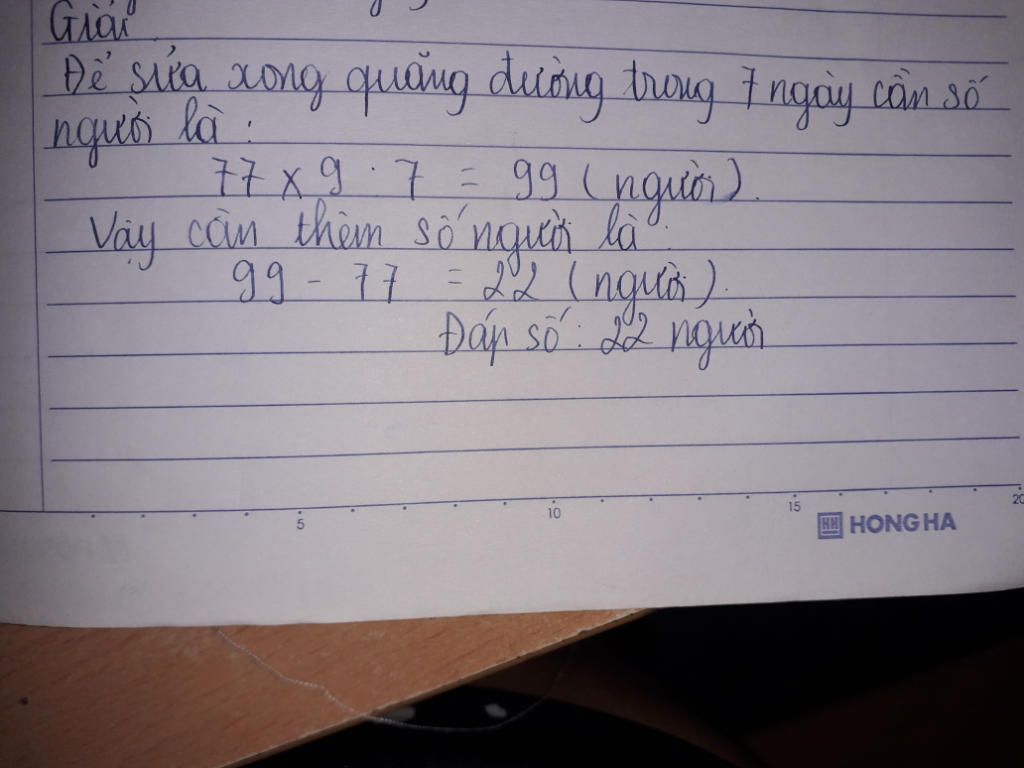 Giải
Để sửa xong quãng đường trong 7 ngày cần số
người là:
77 x 9 : 7 = 99 (người).
Vậy cần thêm số người là:
99 - 77 = 22 (người).
Đáp số: 22 người
5 10 15 20
HH HONG HA